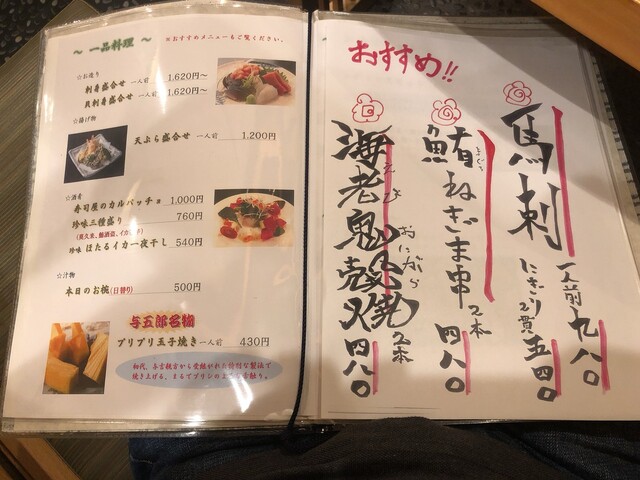 ～ 一品料理 ～
※おすすめメニューもご覧ください。
☆お造り
刺身盛合せ 一人前 1,620円～
貝刺身盛合せ 一人前 1,620円～
☆揚げ物
天ぷら盛合せ 一人前 1,200円
☆酒肴
寿司屋のカルパッチョ 1,000円
珍味三種盛り 760円
珍味 ほたるイカ一夜干し 540円
☆汁物
本日のお椀(日替り) 500円
与五郎名物
プリプリ玉子焼き 一人前 430円
おすすめ!!
馬刺
一人前 九八〇
にぎり2貫 五四〇
鮪ねぎま串
まぐろ
2本 四八〇
海老鬼殻焼
えび おにがら
2本 四八〇